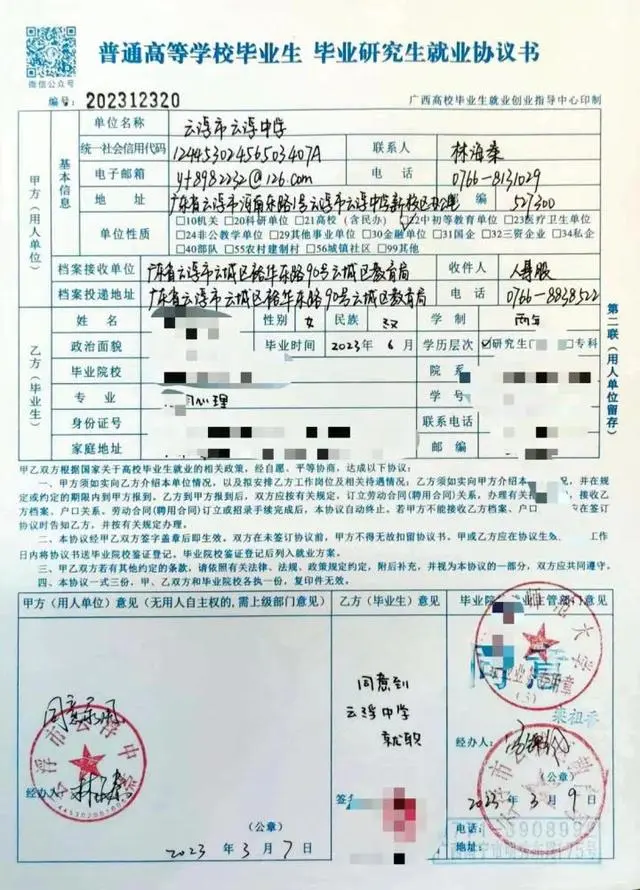 普通高等学校毕业生 毕业研究生就业协议书
微信公众号
编号: 202312320
广西高校毕业生就业创业指导中心印制
甲方(用人单位)
基本信息
单位名称 云浮市云浮中学
统一社会信用代码 12445302456503407A 联系人 林海森
电子邮箱 yf8982232@126.com 电话 0766-8131029
地址 广东省云浮市河南东路1号云浮市云浮中学新校区办公楼 编 527300
单位性质 □10机关 □20科研单位 □21高校(含民办) 22中初等教育单位 □23医疗卫生单位
□24非公教学单位 □29其他事业单位 □30金融单位 □31国企 □32三资企业 □34私企
□40部队 □55农村建制村 □56城镇社区 □99其他
档案接收单位 广东省云浮市云城区裕华东路90号云城区教育局 收件人 人事股
档案投递地址 广东省云浮市云城区裕华东路90号云城区教育局 电话 0766-8838522
乙方(毕业生)
姓名 性别 女 民族 汉 学制 两年
政治面貌 毕业时间 2023年 6月 学历层次 ☑研究生□ □专科
毕业院校 院系
专业 心理 学号
身份证号 联系电话
家庭地址 邮编
第二联(用人单位留存)
甲乙双方根据国家关于高校毕业生就业的相关政策,经自愿、平等协商,达成以下协议:
一、甲方须如实向乙方介绍本单位情况,以及拟安排乙方工作岗位及相关待遇情况;乙方须如实向甲方介绍 况,并在规
定或约定的期限内到甲方报到。乙方到甲方报到后,双方应按有关规定,订立劳动合同(聘用合同)关系,办理有关 接收乙
方档案、户口关系。劳动合同(聘用合同)订立或招录手续完成后,本协议自动终止。若甲方不能接收乙方档案、户口 应在签订
协议时告知乙方,并按有关规定办理。
二、本协议经甲乙双方签字盖章后即生效。双方在未签订协议前,甲方不得无故扣留协议书。甲或乙方应在协议生效 工作
日内将协议书送毕业院校签证登记。毕业院校签证登记后列入就业方案。
三、甲乙双方若有其他约定的条款,请依照有关法律、法规、政策规定约定,附后补充,并视为本协议的一部分,双方应共同遵守。
四、本协议一式三份,甲、乙双方和毕业院校各执一份,复印件无效。
甲方(用人单位)意见(无用人自主权的,需上级部门意见)
乙方(毕业生)意见
毕业院 业主管部门意见
同意到
云浮中学
就职
云浮市云浮中学
经办人:
(公章)
2023年3月7日
经办人:
(公章)
2023年3月9日
电话:
地址: